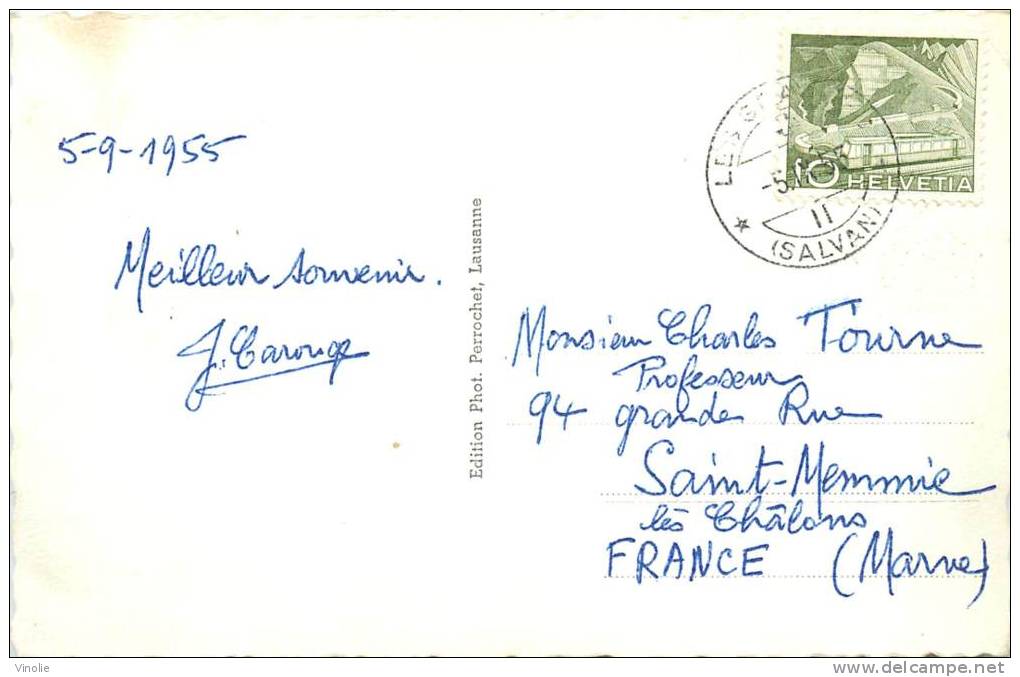 5-9-1955
Meilleur souvenir.
Edition Phot. Perrochet, Lausanne
10 HELVETIA
LES
-5.
11
(SALVAN)
Monsieur Charles Tourne
Professeur
94 grande Rue
Saint-Memmie
lès Châlons
FRANCE (Marne)
Vinolie
delcampe.net